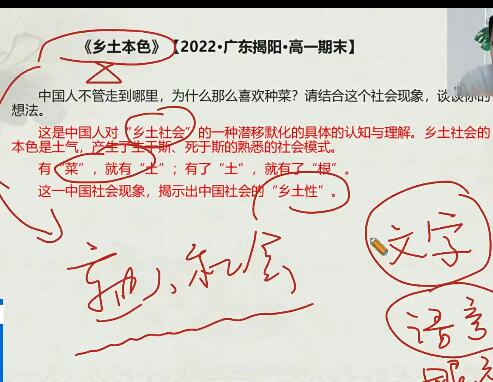 《乡土本色》【2022·广东揭阳·高一期末】
中国人不管走到哪里，为什么那么喜欢种菜？请结合这个社会现象，谈谈你的
想法。
这是中国人对“乡土社会”的一种潜移默化的具体的认知与理解。乡土社会的
本色是土气，产生了生于斯、死于斯的熟悉的社会模式。
有“菜”，就有“土”；有了“土”，就有了“根”。
这一中国社会现象，揭示出中国社会的“乡土性”。
文字
语言